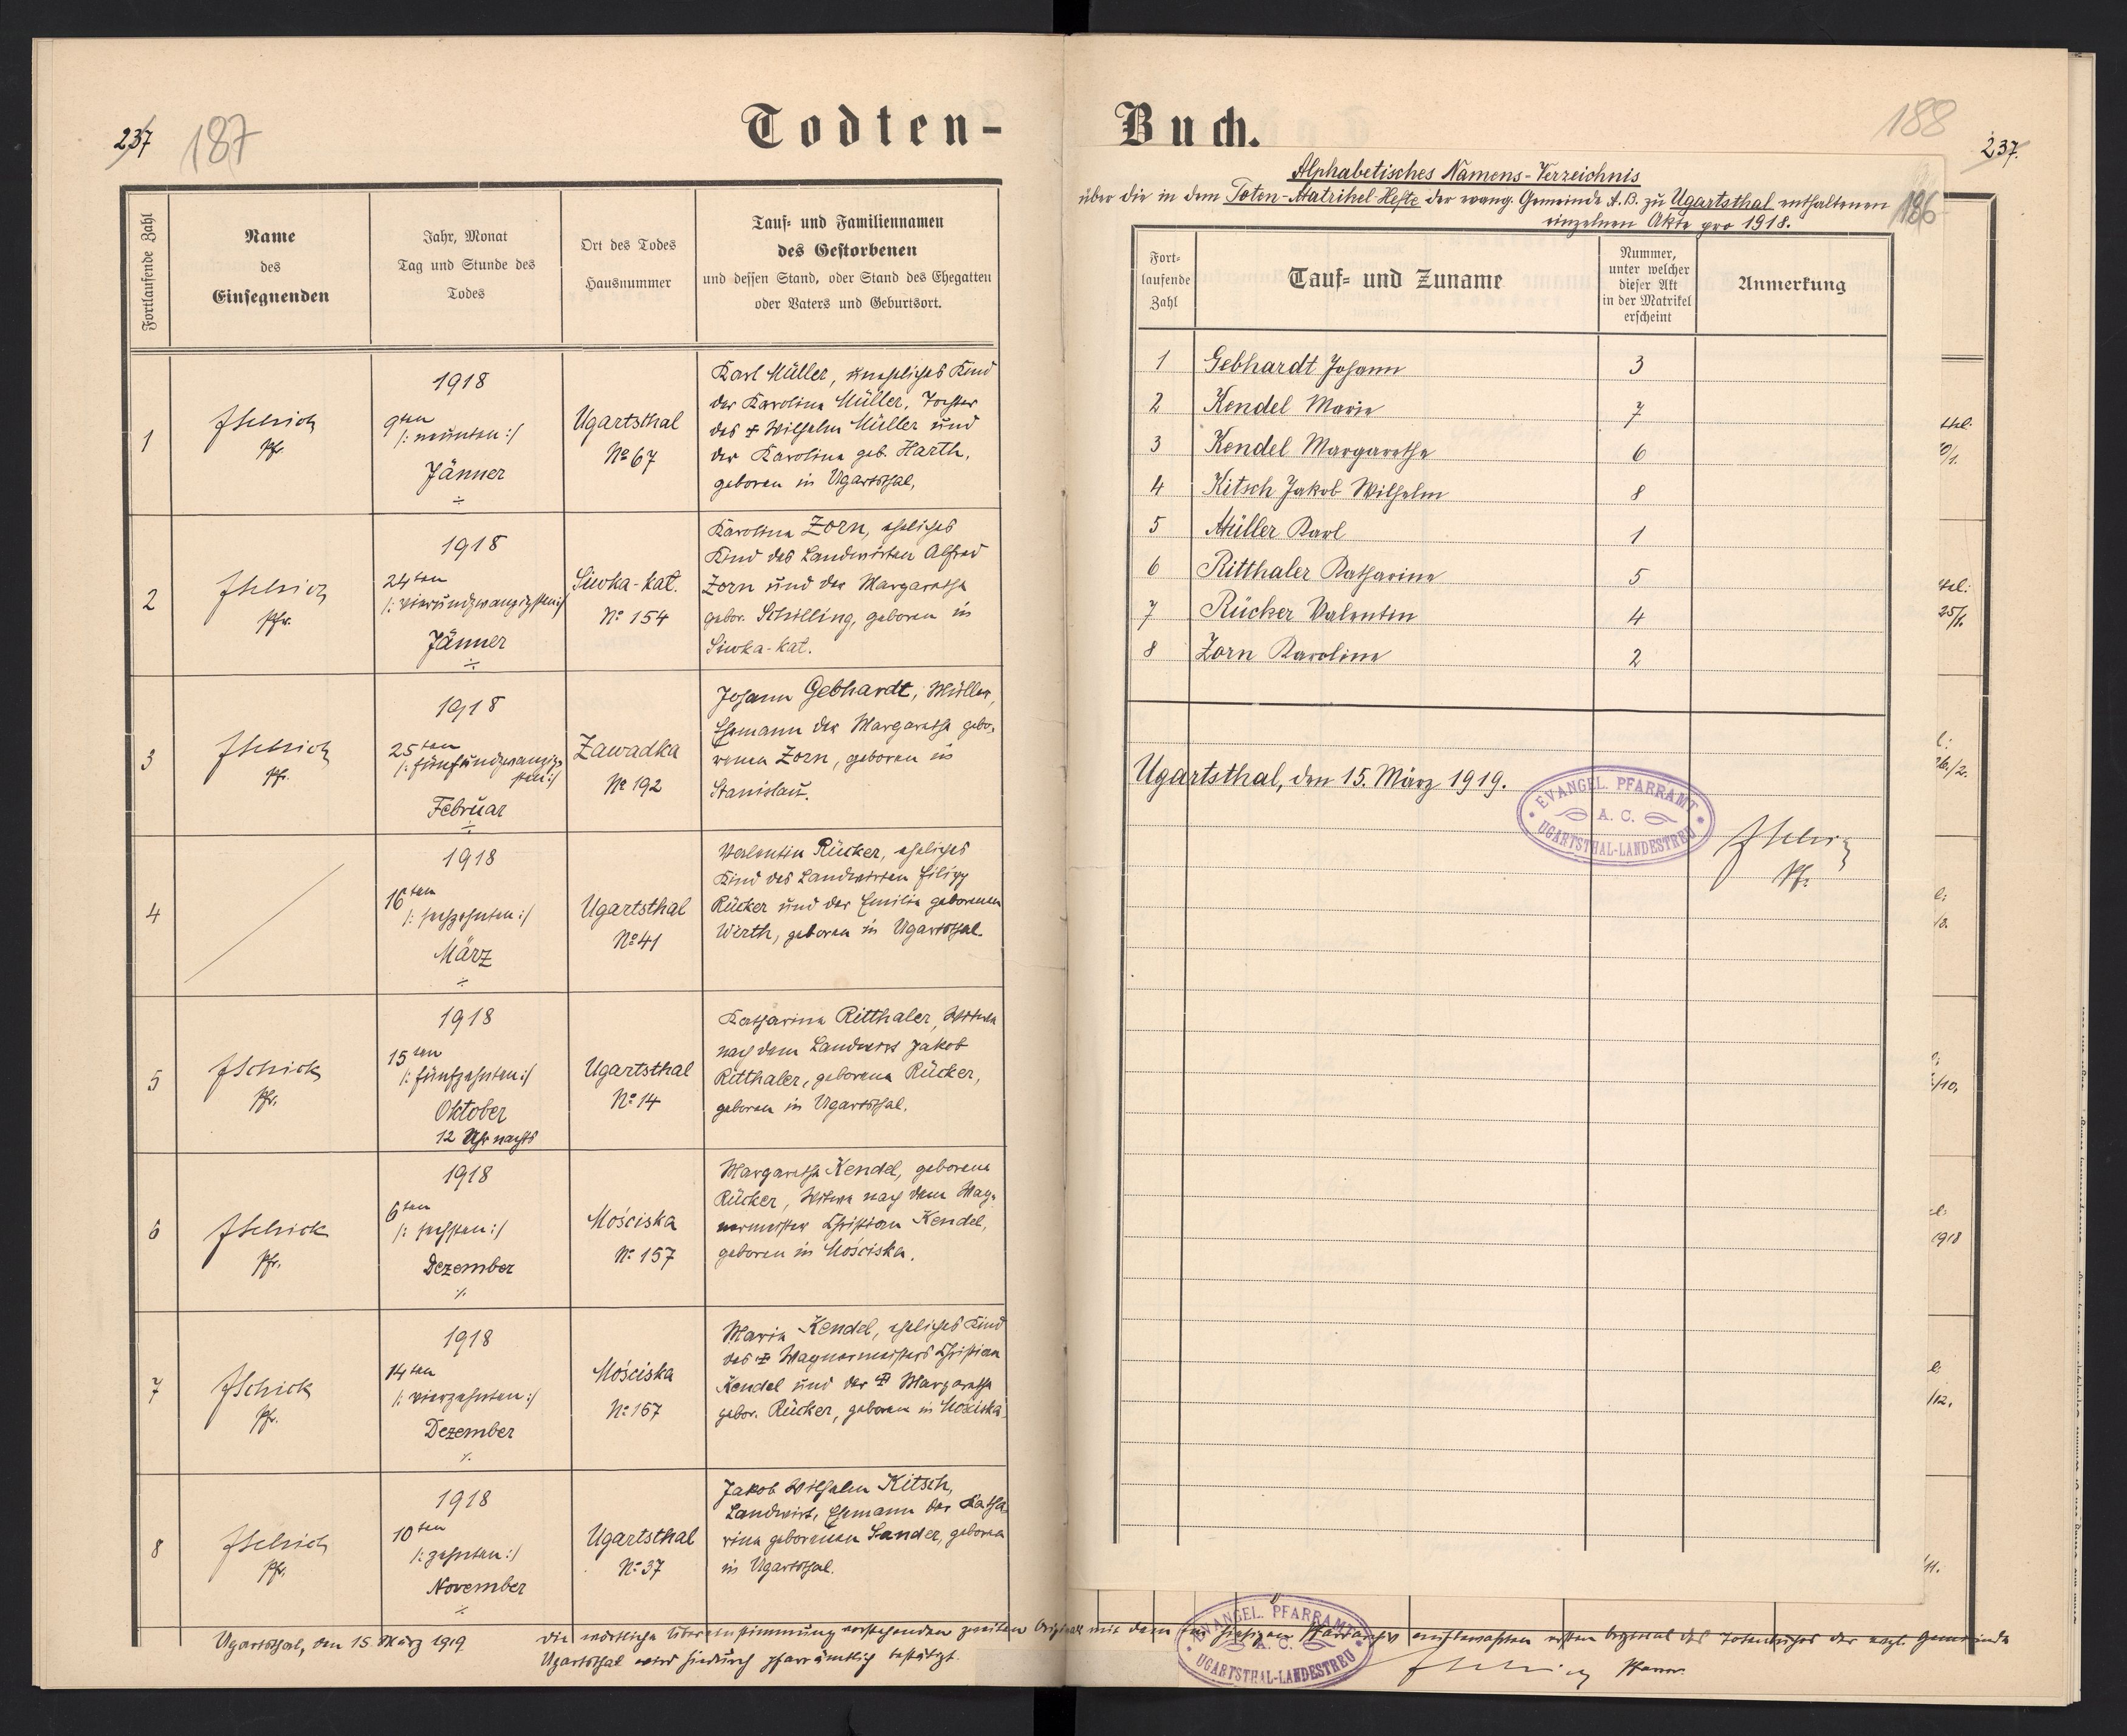 237 187
Todten-
Fortlaufende Zahl
Name
des
Einsegnenden
Jahr, Monat
Tag und Stunde des
Todes
Ort des Todes
Hausnummer
Tauf- und Familiennamen
des Gestorbenen
und dessen Stand, oder Stand des Ehegatten
oder Vaters und Geburtsort.
1
JSchick
Pfr.
1918
9ten
/: neunten :/
Jänner
÷
Ugartsthal
No 67
Karl Müller, uneheliches Kind
der Karolina Müller, Tochter
des ✝ Wilhelm Müller und
der Karolina geb. Harth,
geboren in Ugartsthal,
2
JSchick
Pfr.
1918
24ten
/: vierundzwanzigsten :/
Jänner
÷
Siwka-kat.
No 154
Karolina Zorn, eheliches
Kind des Landwirten Alfred
Zorn und der Margaretha
gebor. Schilling, geboren in
Siwka-kat.
3
JSchick
Pfr.
1918
25ten
/: fünfundzwanzig-
sten :/
Februar
÷
Zawadka
No 192
Johann Gebhardt, Müller,
Ehemann der Margaretha gebo-
renen Zorn, geboren in
Stanislau.
4
1918
16ten
/: sechzehnten :/
März
÷
Ugartsthal
No 41
Valentin Rücker, eheliches
Kind des Landwirten Filipp
Rücker und der Emilie geborenen
Wirth, geboren in Ugartsthal.
5
JSchick
Pfr.
1918
15ten
/: fünfzehnten :/
Oktober
12 Uhr nachts
Ugartsthal
No 14
Katharina Ritthaler, Witwe
nach dem Landwirt Jakob
Ritthaler, geborene Rücker,
geboren in Ugartsthal.
6
JSchick
Pfr.
1918
6ten
/: sechsten :/
Dezember
⁒
Mościska
No 157
Margaretha Kendel, geborene
Rücker, Witwe nach dem Wag-
nermeister Christian Kendel,
geboren in Mościska.
7
JSchick
Pfr.
1918
14ten
/: vierzehnten :/
Dezember
⁒
Mościska
No 157
Maria Kendel, eheliches Kind
des ✝ Wagnermeisters Christian
Kendel und der ✝ Margaretha
gebor. Rücker, geboren in Mościska
8
JSchick
Pfr.
1918
10ten
/: zehnten :/
November
÷
Ugartsthal
No 37
Jakob Wilhelm Kitsch,
Landwirt, Ehemann der Katha-
rina geborenen Sander, geboren
in Ugartsthal.
Ugartsthal, den 15. März 1919
Die wörtliche Übereinstimmung vorstehenden zweiten Originals mit dem im hiesigen Pfarrarchiv ersten Original des Totenbuches der evgl. Gemeinde
Ugartsthal wird hiedurch pfarrämtlich bestätigt.
EVANGEL. PFARRAMT
A. C.
UGARTSTHAL-LANDESTREU
JSchick Pfarrer.
Buch.
188 237.
Alphabetisches Namens-Verzeichnis
über die in dem Toten-Matrikel-Hefte der evang. Gemeinde A. B. zu Ugartsthal enthaltenen
einzelnen Akte pro 1918.
186
Fort-
laufende
Zahl
Tauf- und Zuname
Nummer,
unter welcher
dieser Akt
in der Matrikel
erscheint
Anmerkung
1 Gebhardt Johann 3
2 Kendel Marie 7
3 Kendel Margarethe 6
4 Kitsch Jakob Wilhelm 8
5 Müller Karl 1
6 Ritthaler Katharine 5
7 Rücker Valentin 4
8 Zorn Karoline 2
Ugartsthal, den 15. März 1919.
EVANGEL. PFARRAMT
A. C.
UGARTSTHAL-LANDESTREU
JSchick
Pfr.